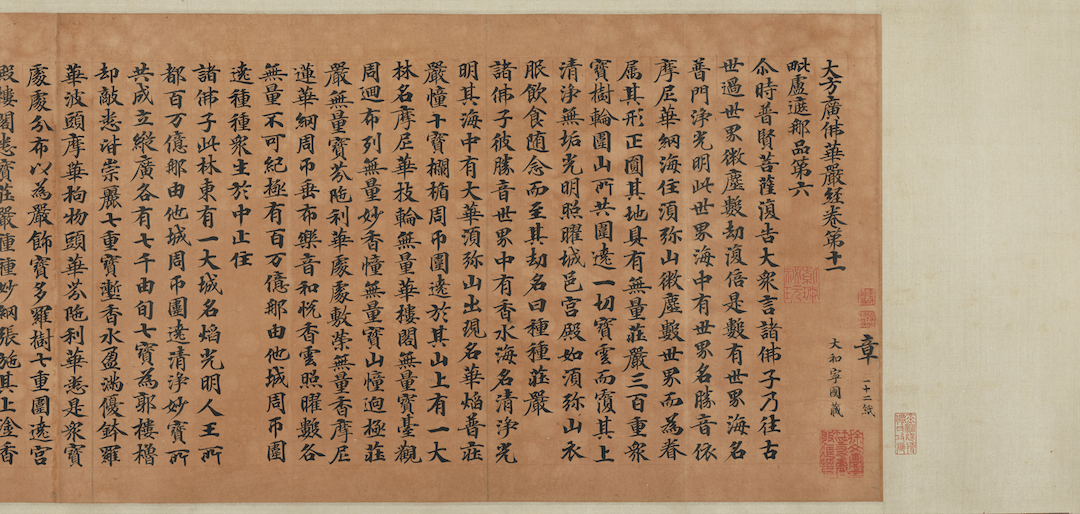 章 一十二紙
大和寧國藏
大方廣佛華嚴經卷第十一
毗盧遮那品第六
尒時普賢菩薩復告大衆言諸佛子乃往古
世過世界微塵數劫復倍是數有世界海名
普門淨光明此世界海中有世界名勝音依
摩尼華網海住湏弥山微塵數世界而為眷
属其形正圓其地具有無量莊嚴三百重衆
寶樹輪圍山所共圍遶一切寶雲而覆其上
清淨無垢光明照曜城邑宮殿如湏弥山衣
服飲食随念而至其劫名曰種種莊嚴
諸佛子彼勝音世界中有香水海名清淨光
明其海中有大華湏弥山出現名華焰普莊
嚴幢十寶欄楯周帀圍遶於其山上有一大
林名摩尼華枝輪無量華樓閣無量寶臺觀
周迴布列無量妙香幢無量寶山幢逈極莊
嚴無量寶芬陁利華處處敷榮無量香摩尼
蓮華網周帀垂布樂音和悅香雲照曜數各
無量不可紀極有百万億那由他城周帀圍
遶種種衆生於中止住
諸佛子此林東有一大城名焰光明人王所
都百万億那由他城周帀圍遶清淨妙寶所
共成立縱廣各有七千由旬七寶為郭樓櫓
却敵悉皆崇麗七重寶塹香水盈滿優鉢羅
華波頭摩華拘物頭華芬陁利華悉是衆寶
處處分布以為嚴飾寶多羅樹七重圍遶宮
殿樓閣悉寶莊嚴種種妙網張施其上塗香